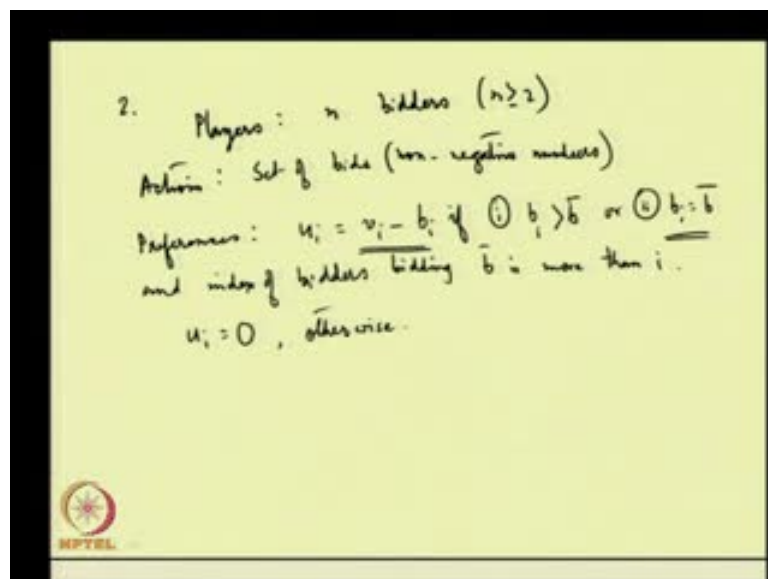 2. Players : n bidders (n ≥ 2)
Actions : Set of bids (non-negative numbers)
Preferences : uᵢ = vᵢ - bᵢ if (i) bᵢ > b̄ or (ii) bᵢ = b̄
and index of bidders bidding b̄ is more than i.
uᵢ = 0 , otherwise.
NPTEL